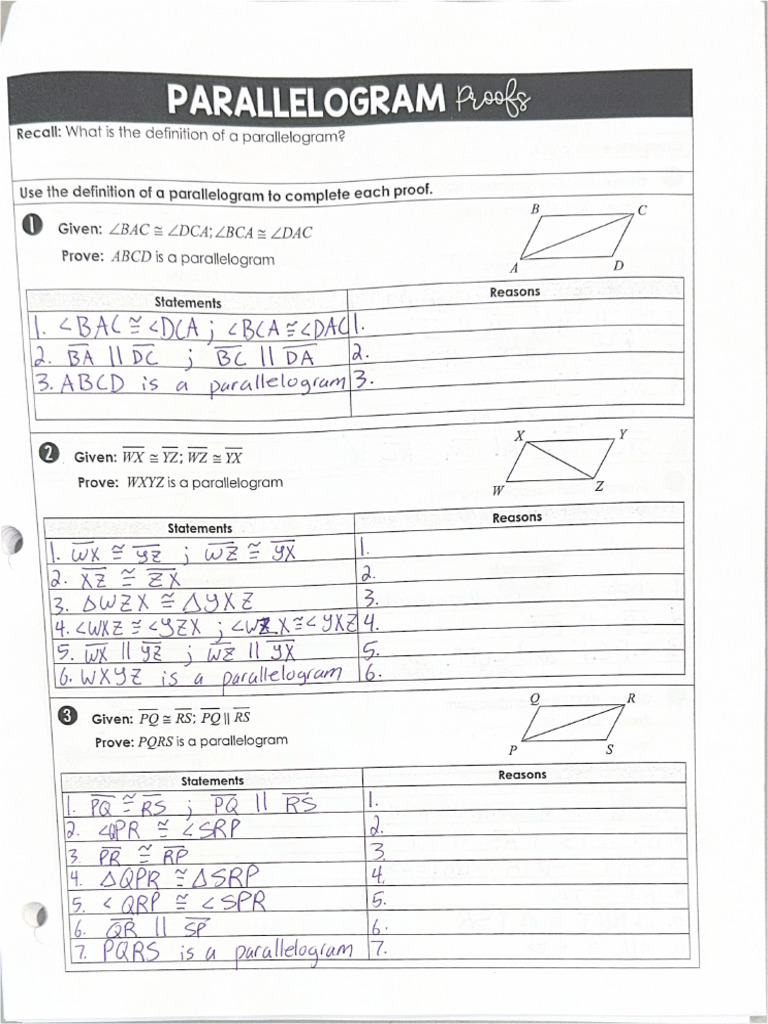 PARALLELOGRAM Proofs
Recall: What is the definition of a parallelogram?
Use the definition of a parallelogram to complete each proof.
1 Given: ∠BAC ≅ ∠DCA; ∠BCA ≅ ∠DAC
Prove: ABCD is a parallelogram
B C
A D
Statements Reasons
1. <BAC ≅ <DCA ; <BCA ≅ <DAC 1.
2. BA || DC ; BC || DA 2.
3. ABCD is a parallelogram 3.
2 Given: WX ≅ YZ; WZ ≅ YX
Prove: WXYZ is a parallelogram
X Y
W Z
Statements Reasons
1. WX ≅ YZ ; WZ ≅ YX 1.
2. XZ ≅ ZX 2.
3. △WZX ≅ △YXZ 3.
4. <WXZ ≅ <YZX ; <WZX ≅ <YXZ 4.
5. WX || YZ ; WZ || YX 5.
6. WXYZ is a parallelogram 6.
3 Given: PQ ≅ RS; PQ || RS
Prove: PQRS is a parallelogram
Q R
P S
Statements Reasons
1. PQ ≅ RS ; PQ || RS 1.
2. <QPR ≅ <SRP 2.
3. PR ≅ RP 3
4. △QPR ≅ △SRP 4.
5. < QRP ≅ <SPR 5.
6. QR || SP 6.
7. PQRS is a parallelogram 7.